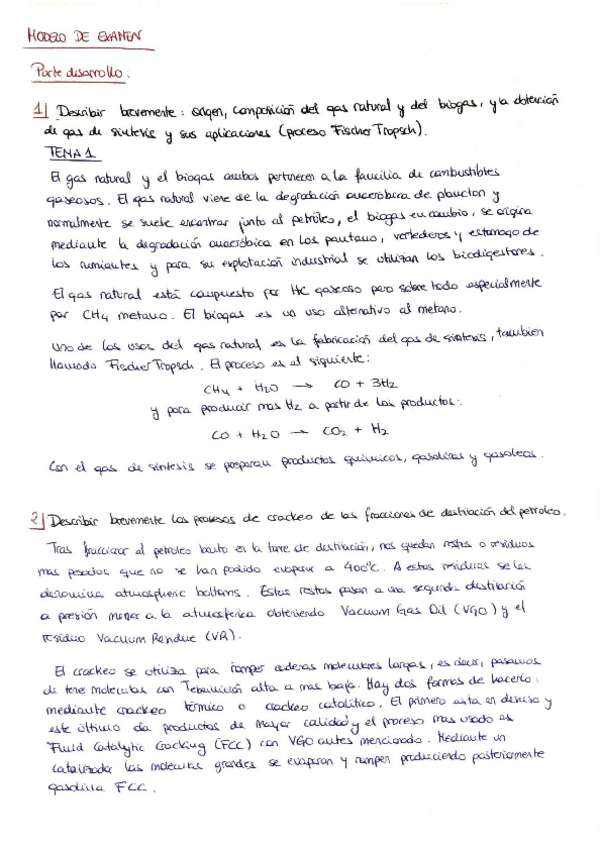 MODELO DE EXAMEN
Parte desarrollo:
1| Describir brevemente: origen, composición del gas natural y del biogas, y la obtención
de gas de síntesis y sus aplicaciones (proceso Fischer Tropsch).
TEMA 1
El gas natural y el biogas ambos pertenecen a la familia de combustibles
gaseosos. El gas natural viene de la degradación anaeróbica de plancton y
normalmente se suele encontrar junto al petróleo, el biogas en cambio, se origina
mediante la degradación anaeróbica en los pantano, vertederos y estomago de
los rumiantes y para su explotación industrial se utilizan los biodigestores.
El gas natural está compuesto por HC gaseoso pero sobre todo especialmente
por CH4 metano. El biogas es un uso alternativo al metano.
Uno de los usos del gas natural es la fabricación del gas de síntesis, también
llamado Fischer Tropsch. El proceso es el siguiente:
CH4 + H2O → CO + 3H2
y para producir mas H2 a partir de los productos:
CO + H2O → CO2 + H2
Con el gas de síntesis se preparan productos químicos, gasolinas y gasoleos.
2| Describir brevemente los procesos de crackeo de las fracciones de destilación del petroleo.
Tras fraccionar el petroleo bruto en la torre de destilación, nos quedan restos o residuos
mas pesados que no se han podido evaporar a 400°C. A estos residuos se les
denomina atmospheric bottoms. Estos restos pasan a una segunda destilación
a presión menor a la atmosferica obteniendo Vacuum Gas Oil (VGO) y el
residuo Vacuum Residue (VR).
El crackeo se utiliza para romper cadenas moleculares largas, es decir, pasamos
de tener moleculas con Tebullición alta a mas baja. Hay dos formas de hacerlo:
mediante crackeo térmico o crackeo catalítico. El primero esta en desuso y
este último da productos de mayor calidad y el proceso mas usado es
Fluid Catalytic Cracking (FCC) con VGO antes mencionado. Mediante un
catalizador las moleculas grandes se evaporan y rompen produciendo posteriormente
gasolina FCC.